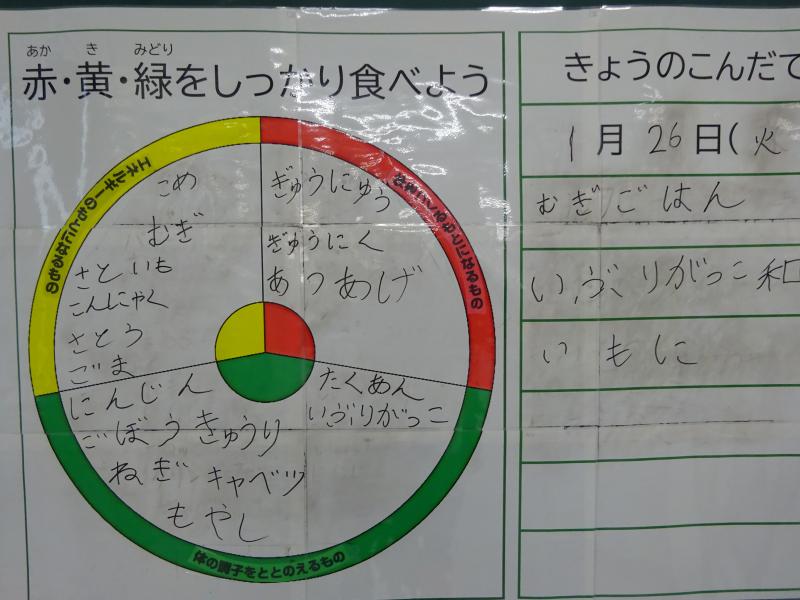 あか き みどり
赤・黄・緑をしっかり食べよう
エネルギーのもとになるもの
こめ
むぎ
さといも
こんにゃく
さとう
ごま
ぎゅうにゅう
ぎゅうにく
あつあげ
にんじん
ごぼう きゅうり
ねぎ キャベツ
もやし
たくあん
いぶりがっこ
体の調子をととのえるもの
きょうのこんだて
1月26日(火
むぎごはん
いぶりがっこ和
いもに